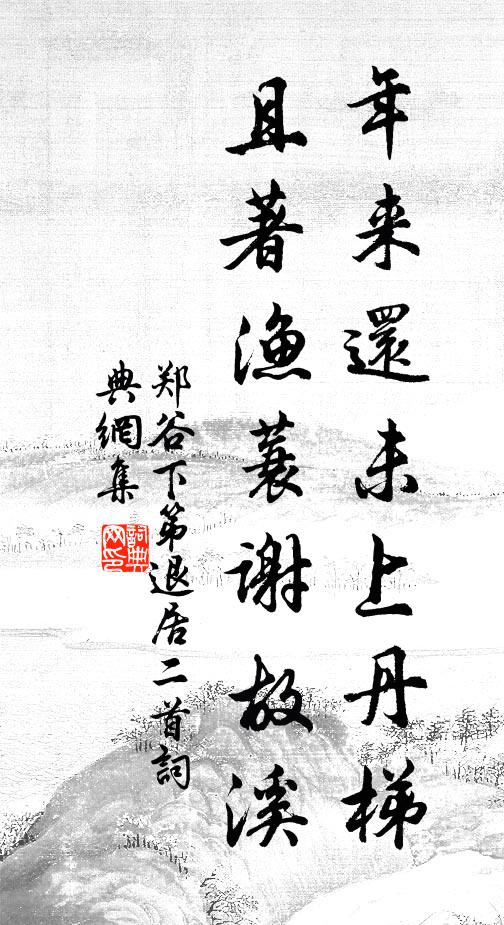 年来還未上丹梯
且著漁蓑謝故溪
郑谷下第退居二首詞
典網集
詞典网印